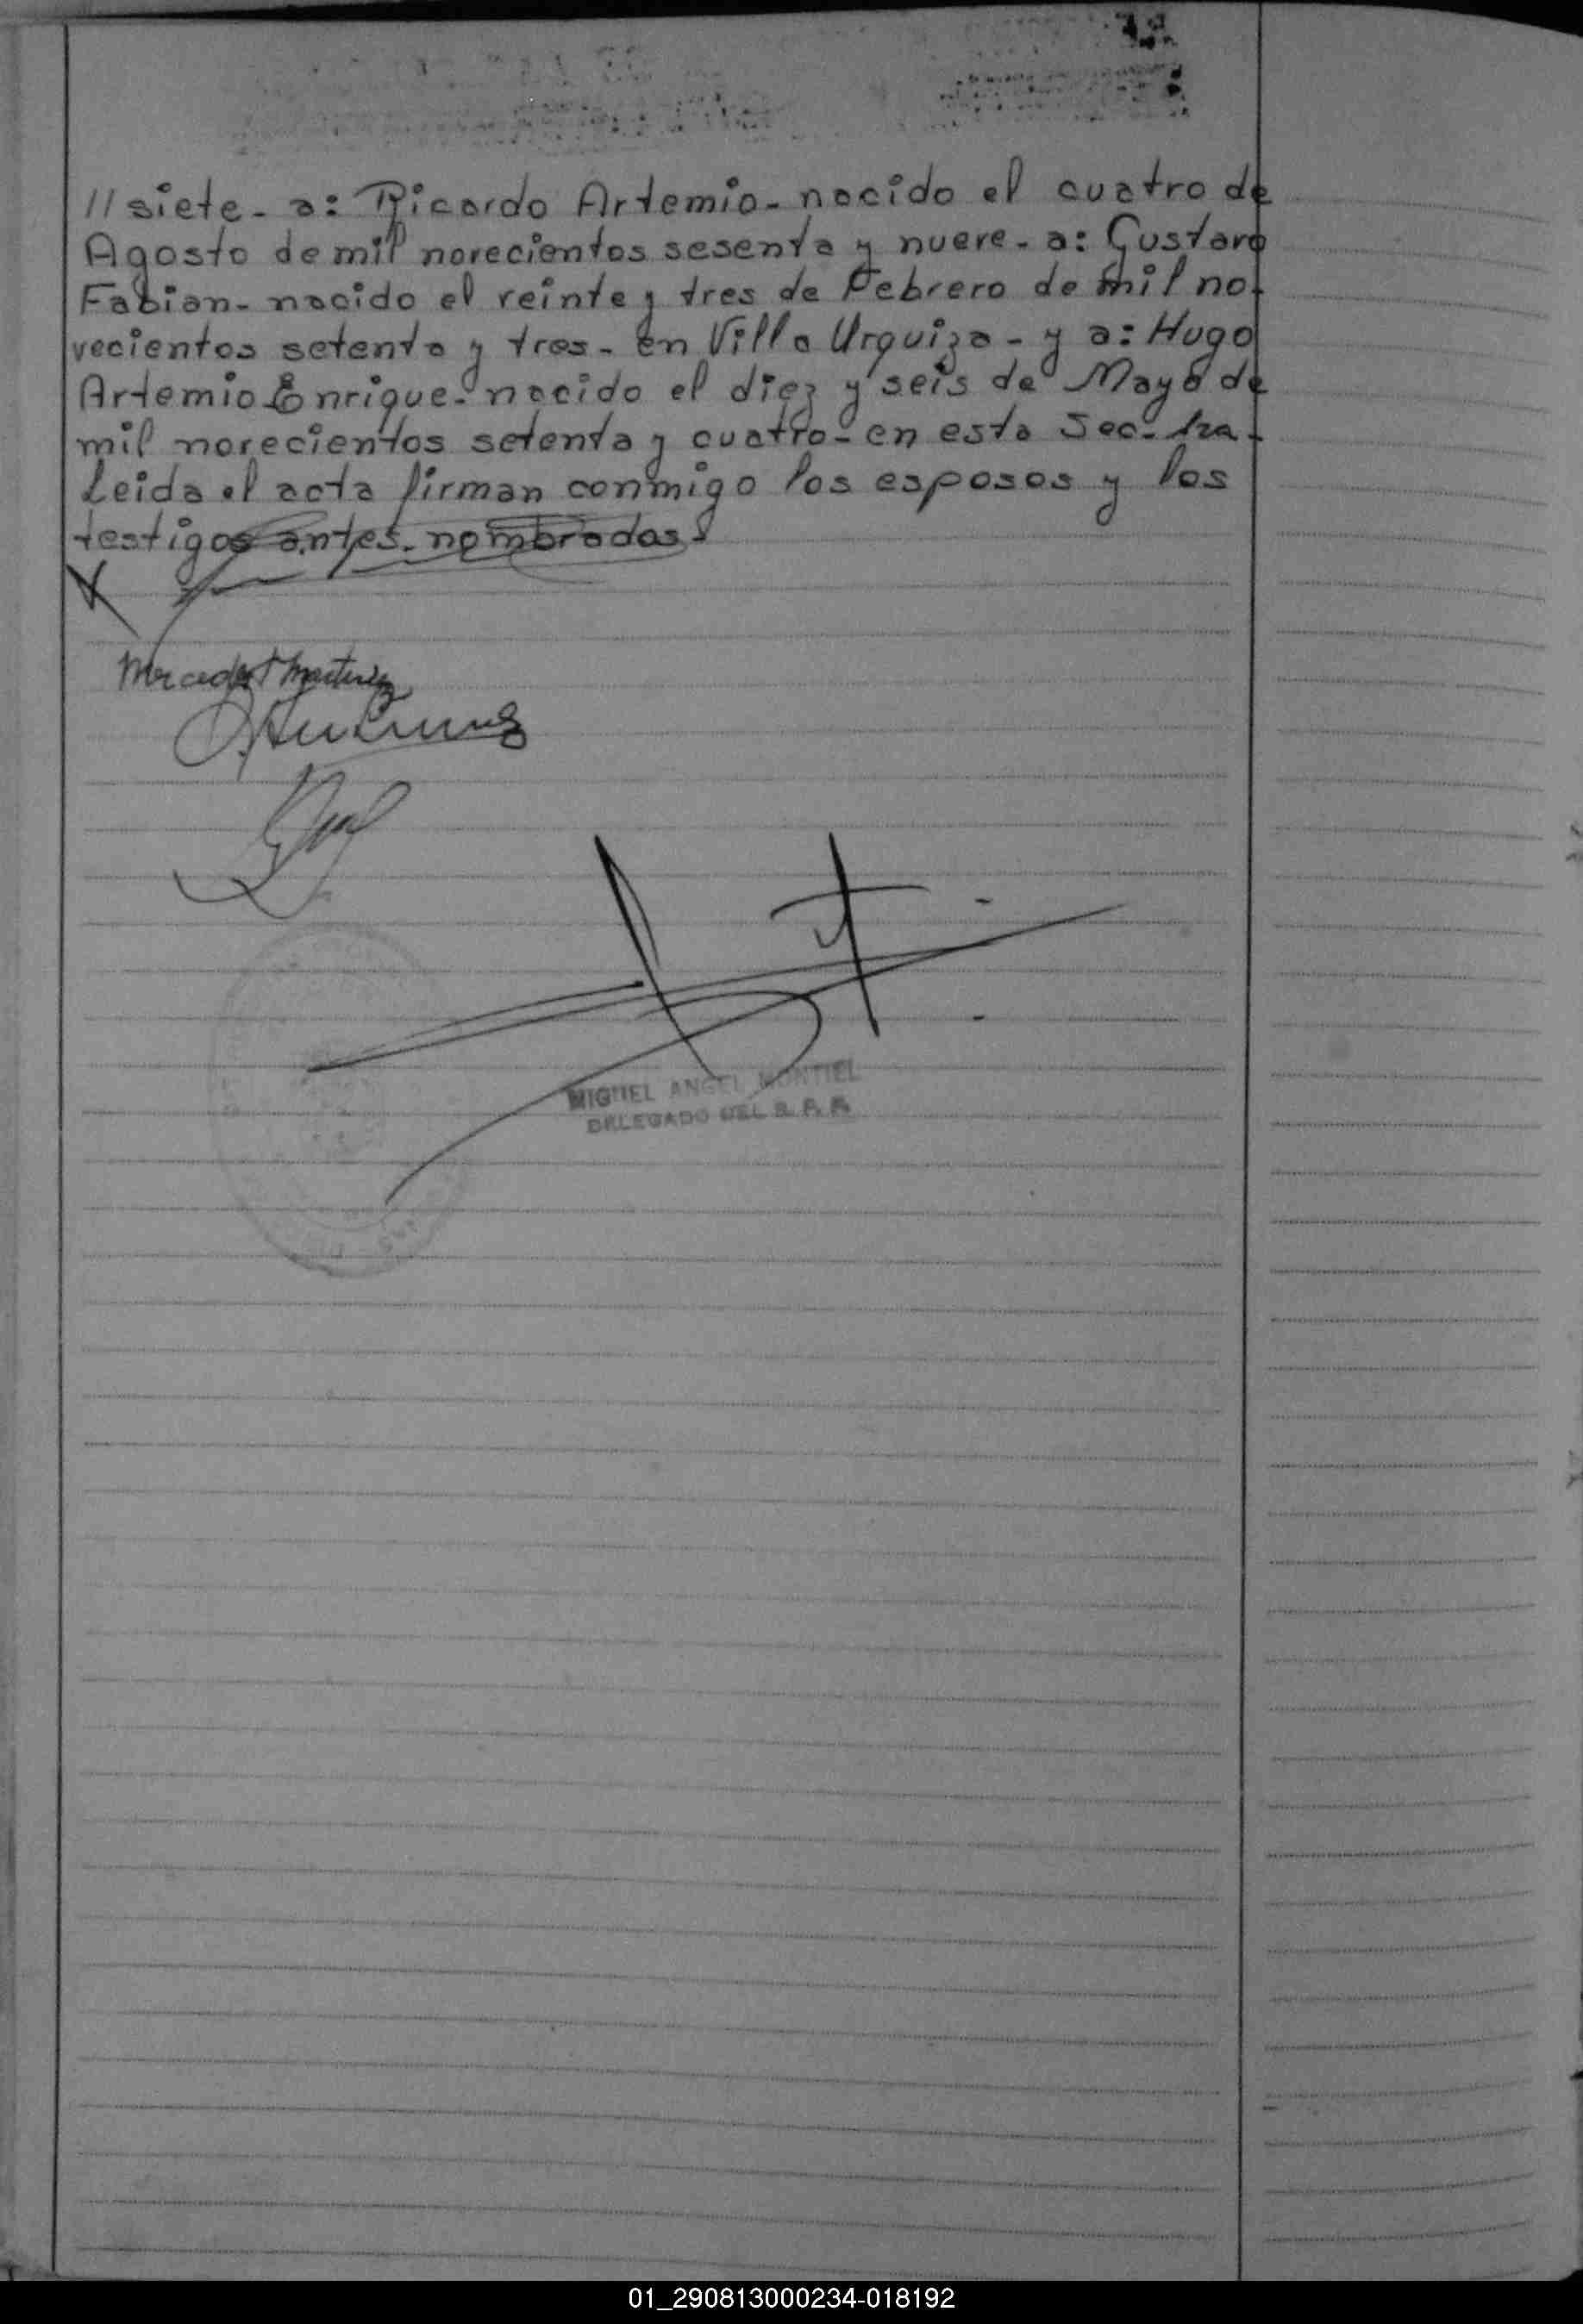 // siete - a: Ricardo Artemio - nacido el cuatro de
Agosto de mil novecientos sesenta y nueve - a: Gustavo
Fabian - nacido el veinte y tres de Febrero de mil no-
vecientos setenta y tres - en Villa Urquiza - y a: Hugo
Artemio Enrique - nacido el diez y seis de Mayo de
mil novecientos setenta y cuatro - en esta Sec. 1ra -
Leida el acta firman conmigo los esposos y los
testigos antes nombrados -
Martinez
MIGUEL ANGEL MONTIEL
DELEGADO DEL
01_290813000234-018192